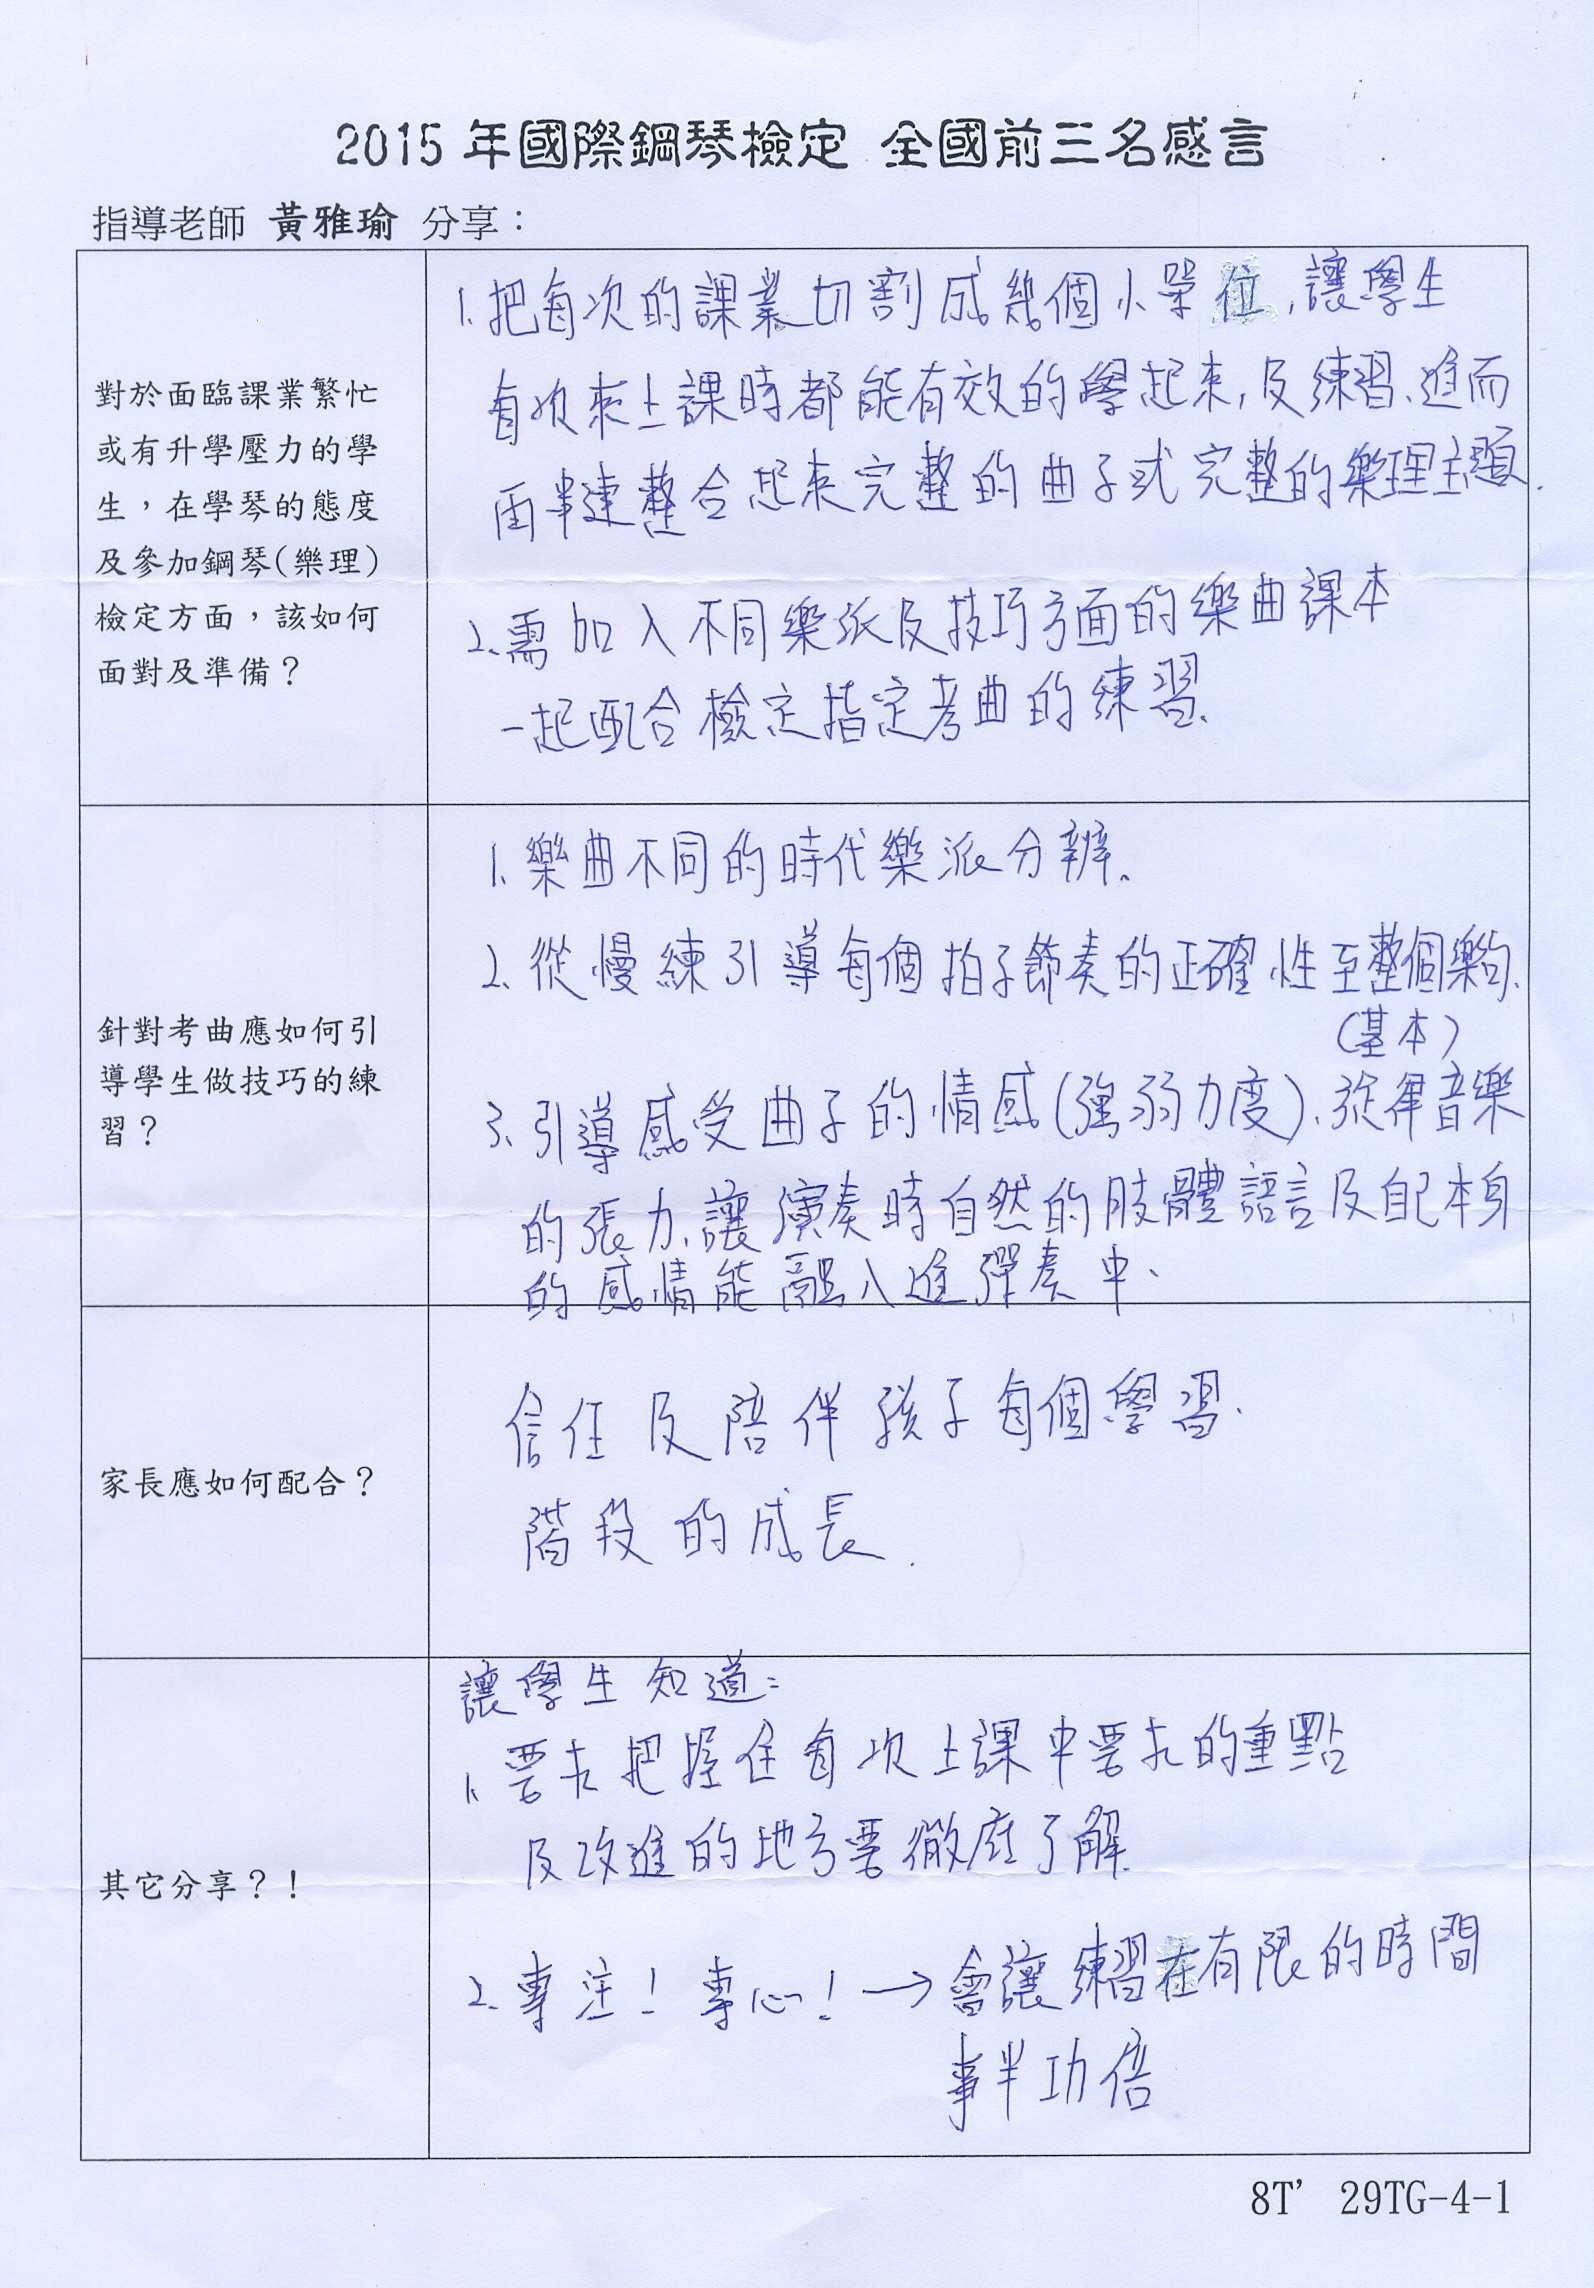 2015 年國際鋼琴檢定 全國前三名感言
指導老師 黃雅瑜 分享：
對於面臨課業繁忙
或有升學壓力的學
生，在學琴的態度
及參加鋼琴(樂理)
檢定方面，該如何
面對及準備？
1.把每次的課業切割成幾個小單位,讓學生
每次來上課時都能有效的學起來,及練習、進而
再串連整合起來完整的曲子或完整的樂理主題.
2.需加入不同樂派及技巧方面的樂曲課本
一起配合檢定指定考曲的練習.
針對考曲應如何引
導學生做技巧的練
習？
1.樂曲不同的時代樂派分辨.
2.從慢練引導每個拍子節奏的正確性至整個樂句.
(基本)
3.引導感受曲子的情感(強弱力度).旋律音樂
的張力.讓演奏時自然的肢體語言及自己本身
的感情能融入進彈奏中、
家長應如何配合？
信任及陪伴孩子每個學習.
階段的成長.
其它分享？！
讓學生知道:
1.要求把握住每次上課中要求的重點
及改進的地方要徹底了解.
2.專注! 專心! → 會讓練習在有限的時間
事半功倍
8T' 29TG-4-1